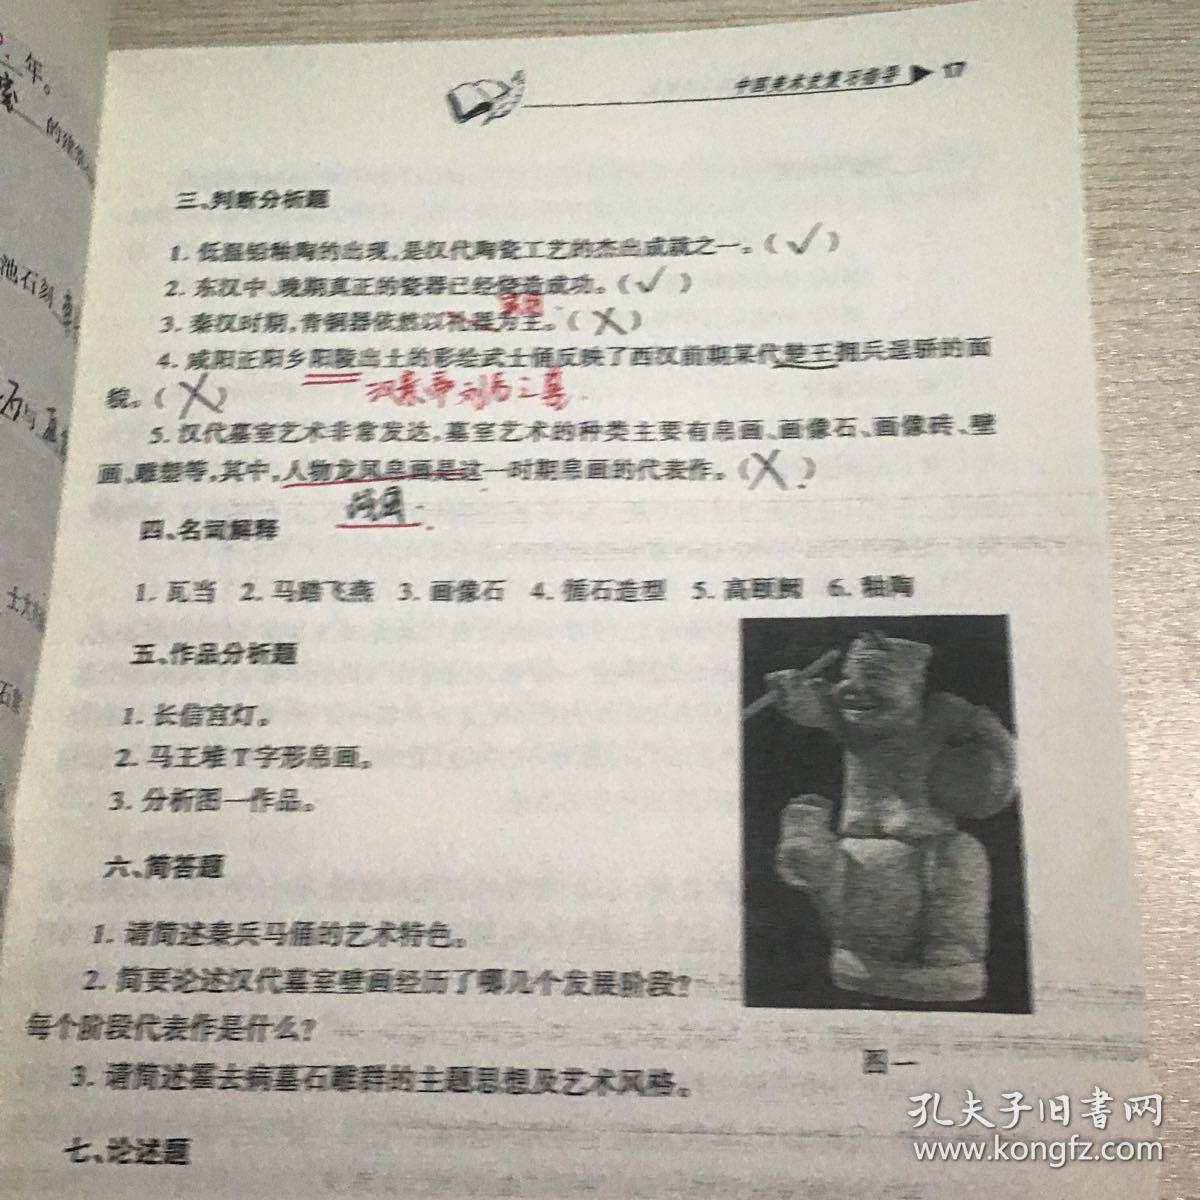 年。
的建筑
池石刻
与
士大
石
中国美术史复习指导 ▶ 17
三、判断分析题
1. 低温铅釉陶的出现,是汉代陶瓷工艺的杰出成就之一。(✓)
2. 东汉中、晚期真正的瓷器已经烧造成功。(✓)
3. 秦汉时期,青铜器依然以礼器为主。(X)
4. 咸阳正阳乡阳陵出土的彩绘武士俑反映了西汉前期某代楚王拥兵逞骄的面
貌。(X)
汉景帝刘启之墓.
5. 汉代墓室艺术非常发达,墓室艺术的种类主要有帛画、画像石、画像砖、壁
画、雕塑等,其中,人物龙凤帛画是这一时期帛画的代表作。(X)
战国
四、名词解释
1. 瓦当 2. 马踏飞燕 3. 画像石 4. 循石造型 5. 高颐阙 6. 釉陶
五、作品分析题
1. 长信宫灯。
2. 马王堆T字形帛画。
3. 分析图一作品。
六、简答题
1. 请简述秦兵马俑的艺术特色。
2. 简要论述汉代墓室壁画经历了哪几个发展阶段?
每个阶段代表作是什么?
图一
3. 请简述霍去病墓石雕群的主题思想及艺术风格。
七、论述题
孔夫子旧书网
www.kongfz.com